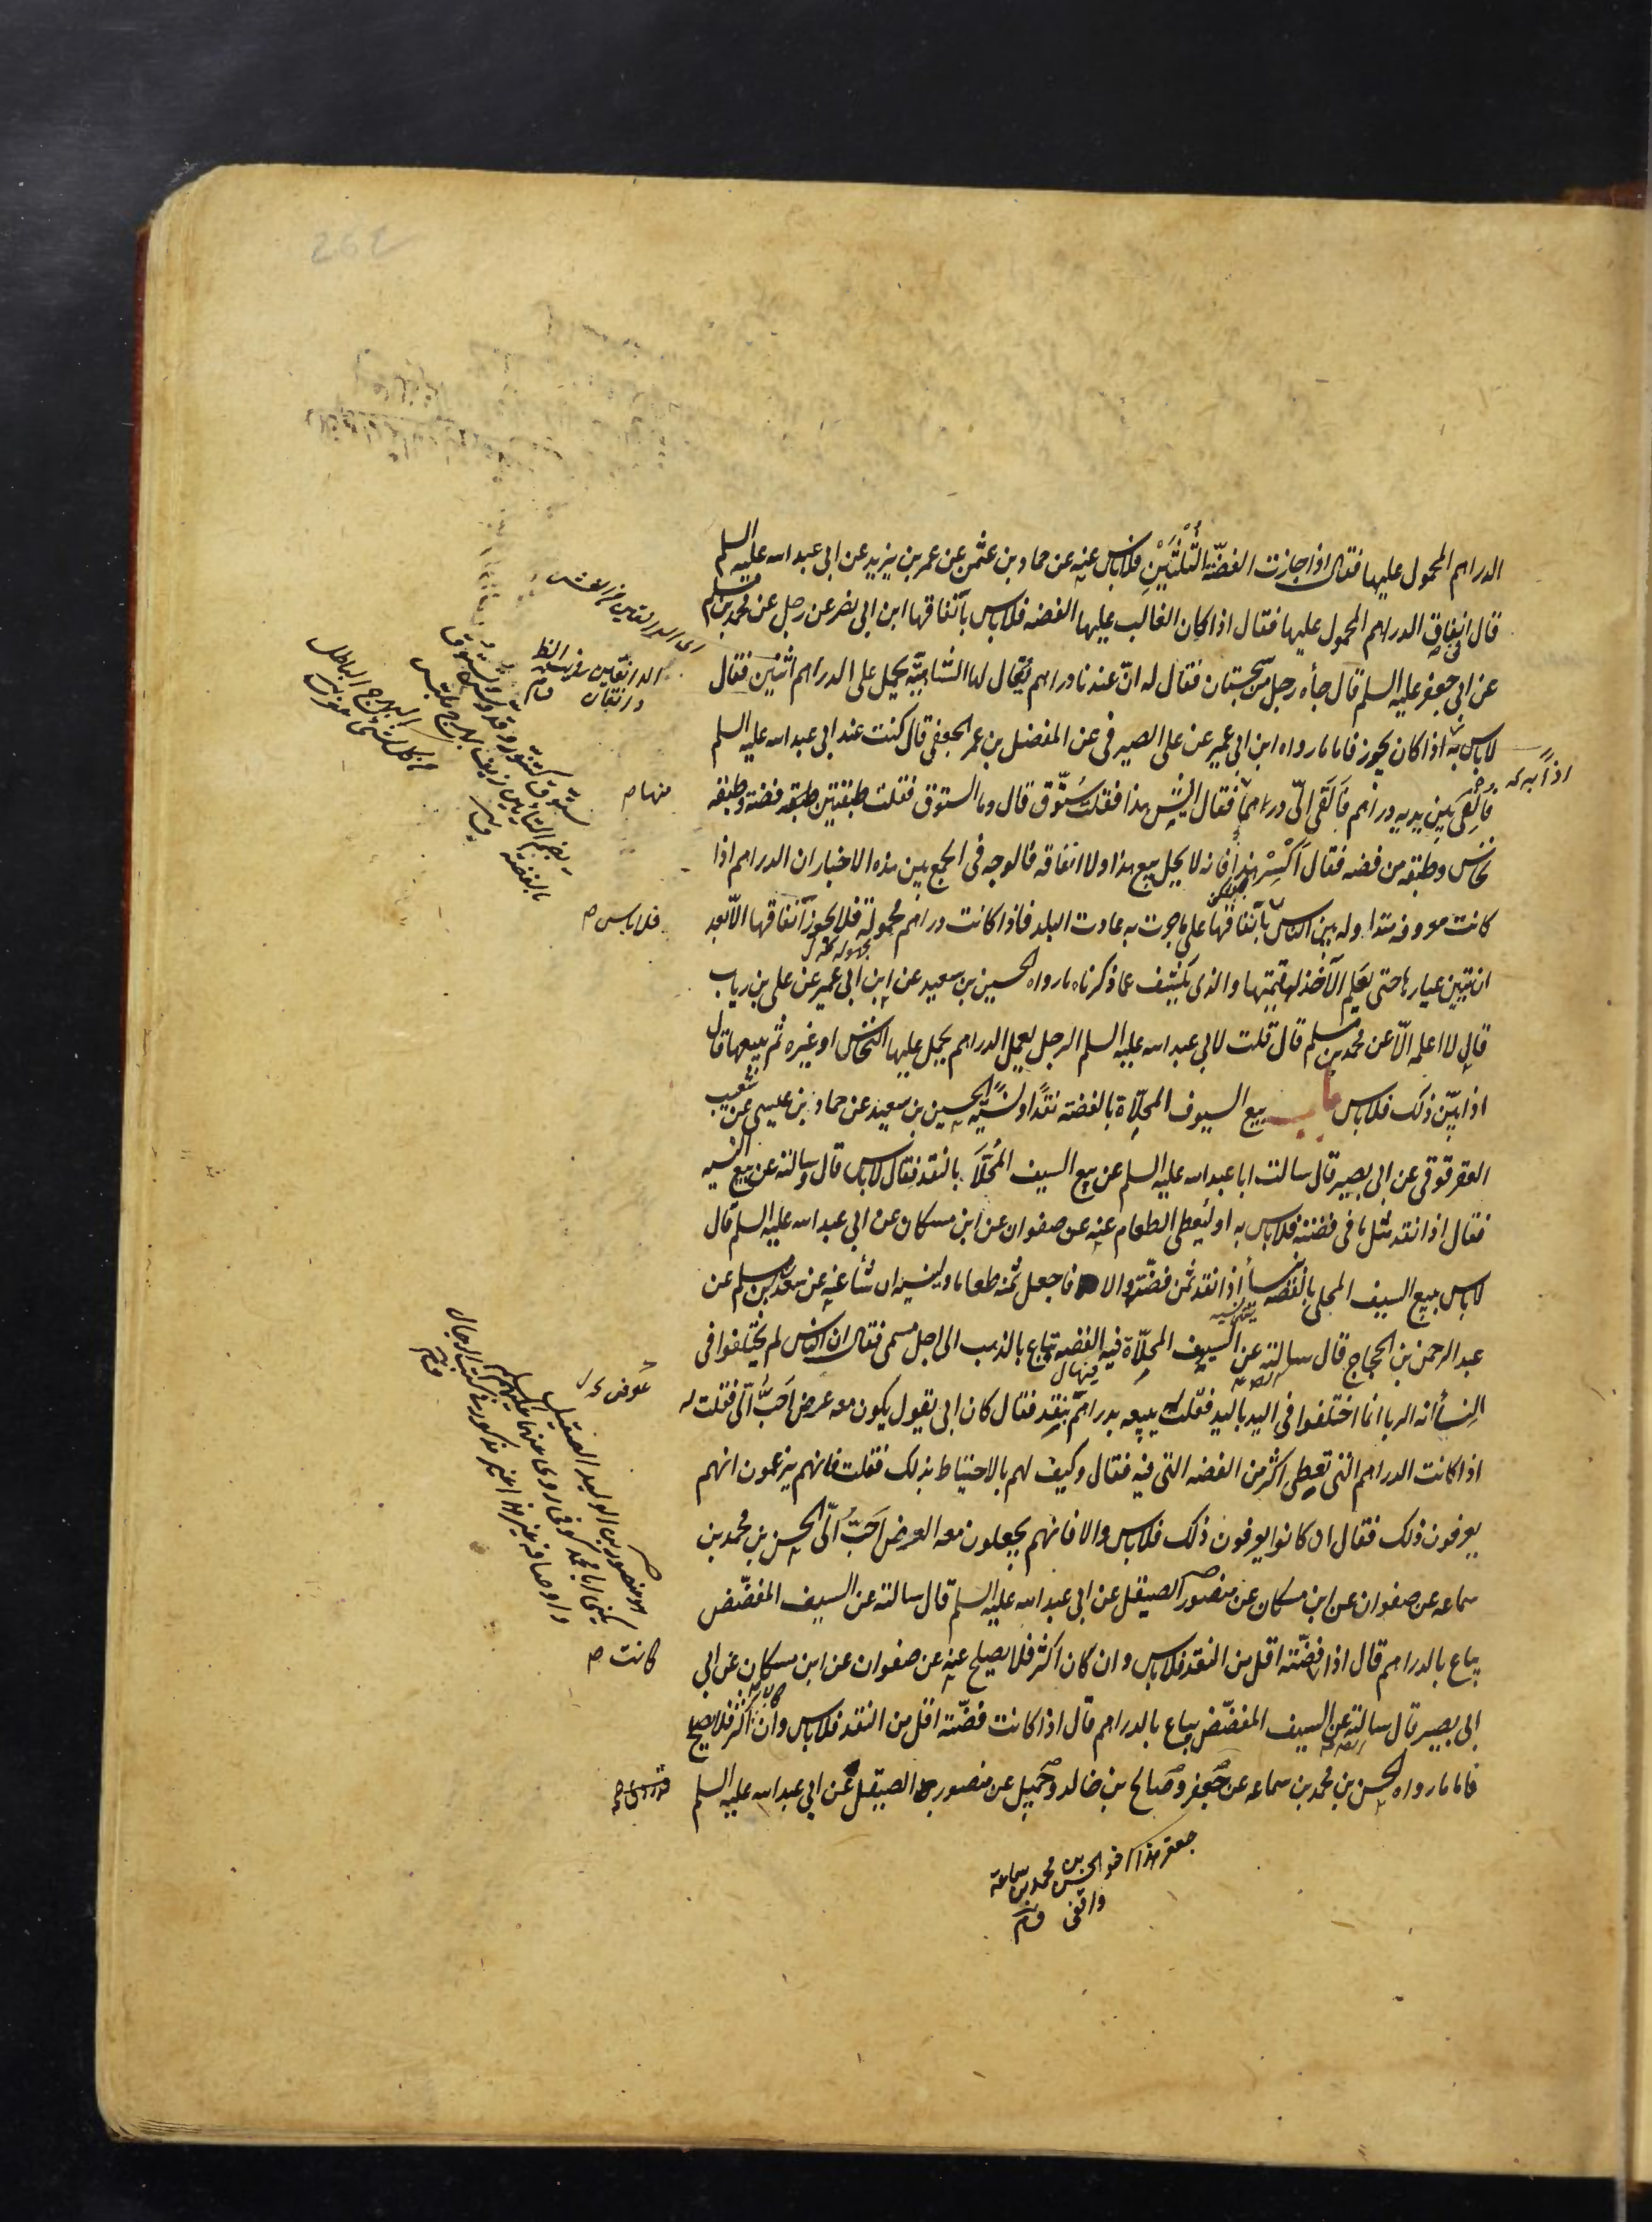 الدراهم المحمول عليها فقال اذا جازت الفضّة الثُلُثَيْنِ فلا باس عنه عن حماد بن عثمن عن عمر بن يزيد عن ابى عبد الله عليه السلم
قال فى انفاق الدراهم المحمول عليها فقال اذا كان الغالب عليها الفضه فلا باس بانفاقها ابن ابى نصر عن رجل عن محمد بن مسلم
عن ابى جعفر عليه السلم قال جاءه رجل من سجستان فقال له انّ عندنا دراهم يقال لها الشاميّة يحمل على الدراهم اثنين فقال
لا باس به اذا كان يجوز فاما ما رواه ابن ابى عمير عن على الصيرفى عن المفضل بن عمر الجعفى قال كنت عند ابى عبد الله عليه السلم
فالقى بين يديه دراهم فَالقَى الىّ درهما فقال ايش هذا فقلت سَتّوق قال وما الستوق فقلت طبقتين طبقه فضة وطبقه
نحاس وطبقه من فضه فقال اكْسِرْ هذا فانه لا يحل بيع هذا ولا انفاقه فالوجه فى الجمع بين هذه الاخبار ان الدراهم اذا
كانت معروفه متداوله بين الناس بانفاقها على ما جرت به عادت البلد فاذا كانت دراهم مجهولة فلا يجوز انفاقها الّا بعد
ان يتبين عيارها حتى يعلم الآخذ لها قيمتها والذى يكشف عما ذكرناه ما رواه الحسين بن سعيد عن ابن ابى عمير عن على بن رياب
قال لا اعلمه الّا عن محمد بن مسلم قال قلت لابى عبد الله عليه السلم الرجل يعمل الدراهم يحمل عليها النحاس او غيره ثم يبيعها قال
اذا بيّن ذلك فلا باس باب بيع السيوف المحلّاة بالفضة نقدًا ونسيّةً الحسين بن سعيد عن حماد بن عيسى عن شعيب
العقرقوقى عن ابى بصير قال سالت ابا عبد الله عليه السلم عن بيع السيف المُحَلّا بالنقد فقال لا باس قال وسالته عن بيع النسيه
فقال اذا نقد مثل ما فى فضته فلا باس به او ليعطى الطعام عنه عن صفوان عن ابن مسكان عن ابى عبد الله عليه السلم قال
لا باس ببيع السيف المحلى بالفضه نسأ اذا نقد ثمن فضته والا فاجعل ثمنه طعاما ولينسه ان شأ عنه عن محمد بن مسلم عن
عبد الرحمن بن الحجاج قال سالته عن السيوف المحلّاة فيه الفضه تباع بالذهب الى اجل مسمى فقال ان الناس لم يختلفوا فى
النِسأ انه الربا انما اختلفوا فى اليد باليد فقلت له يبيعه بدراهم بنقد فقال كان ابى يقول يكون معه عرض احَبُّ الىّ فقلت له
اذا كانت الدراهم التى تعطى اكثر من الفضه التى فيه فقال وكيف لهم بالاحتياط بذلك فقلت فانهم يزعمون انهم
يعرفون ذلك فقال ان كانوا يعرفون ذلك فلا باس والا فانهم يجعلون معه العرض احَبُّ الىّ الحسن بن محمد بن
سماعه عن صفوان عن ابن مسكان عن منصور الصيقل عن ابى عبد الله عليه السلم قال سالته عن السيف المفضّض
يباع بالدراهم قال اذا فضّته اقل من النقد فلا باس وان كان اكثر فلا يصلح عنه عن صفوان عن ابن مسكان عن ابى
ابى بصير قال سالته عن السيف المفضّض يباع بالدراهم قال اذا كانت فضّته اقل من النقد فلا باس وان كان اكثر فلا يصلح
فاما ما رواه الحسن بن محمد بن سماعه عن جعفر وصالح بن خالد وجميل عن منصور الصيقل عن ابى عبد الله عليه السلم
جعفر هذا اخو الحسن بن محمد بن سماعة
واقفى
منها م
فلا باس م
عَوض
كانت م
هو منصور بن الوليد الصيقل
يكنى ابا محمد كوفى روى عنهما عليهم السلم